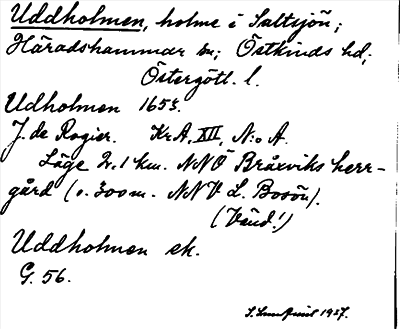 Uddholmen, holme i Saltsjön;
Häradshammar sn; Östkinds hd;
Östergötl. l.
Udholmen 1653.
J. de Rogier. Kr. A. XII, N:o A.
Läge 2.1 km. NNÖ Bråxviks herr-
gård (o. 300 m. NNV L. Bosön).
(Vänd!)
Uddholmen ek.
G. 56.
1927.